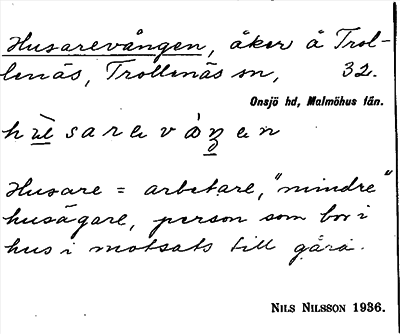 Husarevången, åker å Trol-
lenäs, Trollenäs sn, 32.
Onsjö hd, Malmöhus län.
Husare = arbetare, "mindre"
husägare, person som bor i
hus i motsats till gård.
NILS NILSSON 1936.